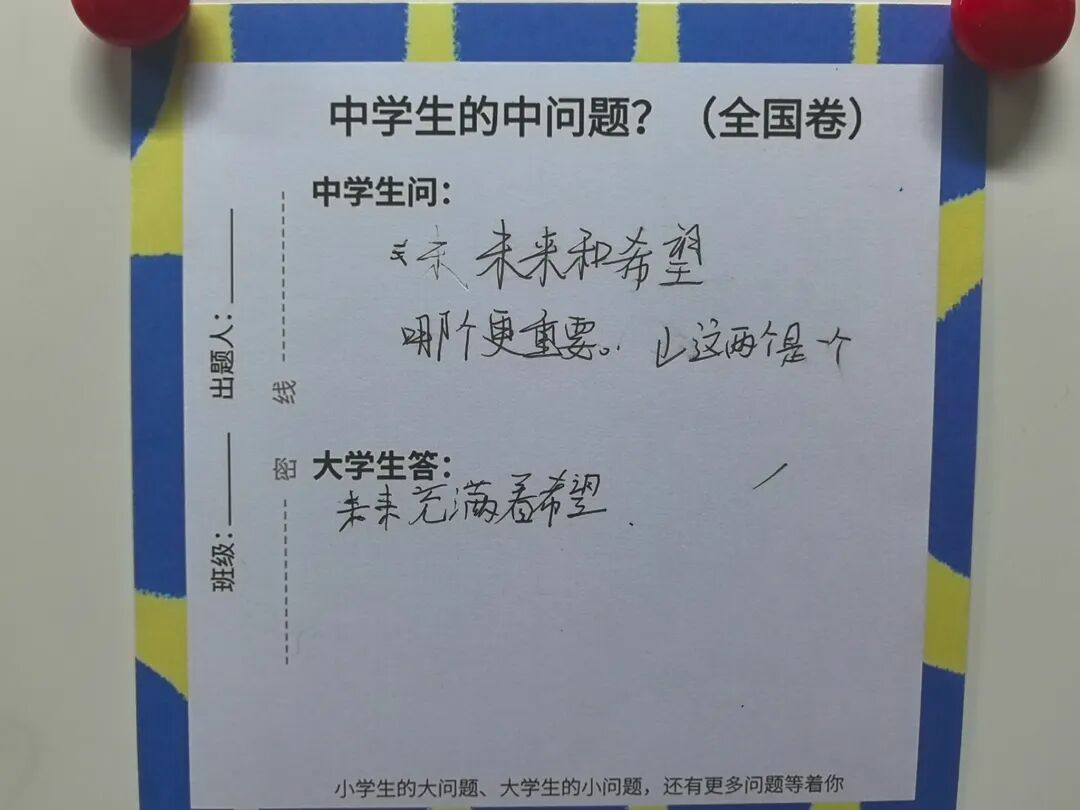 中学生的中问题？（全国卷）
中学生问：
未来和希望
哪个更重要。 这两个是一个
大学生答：
未来充满着希望.
出题人：
班级：
线
密
小学生的大问题、大学生的小问题，还有更多问题等着你